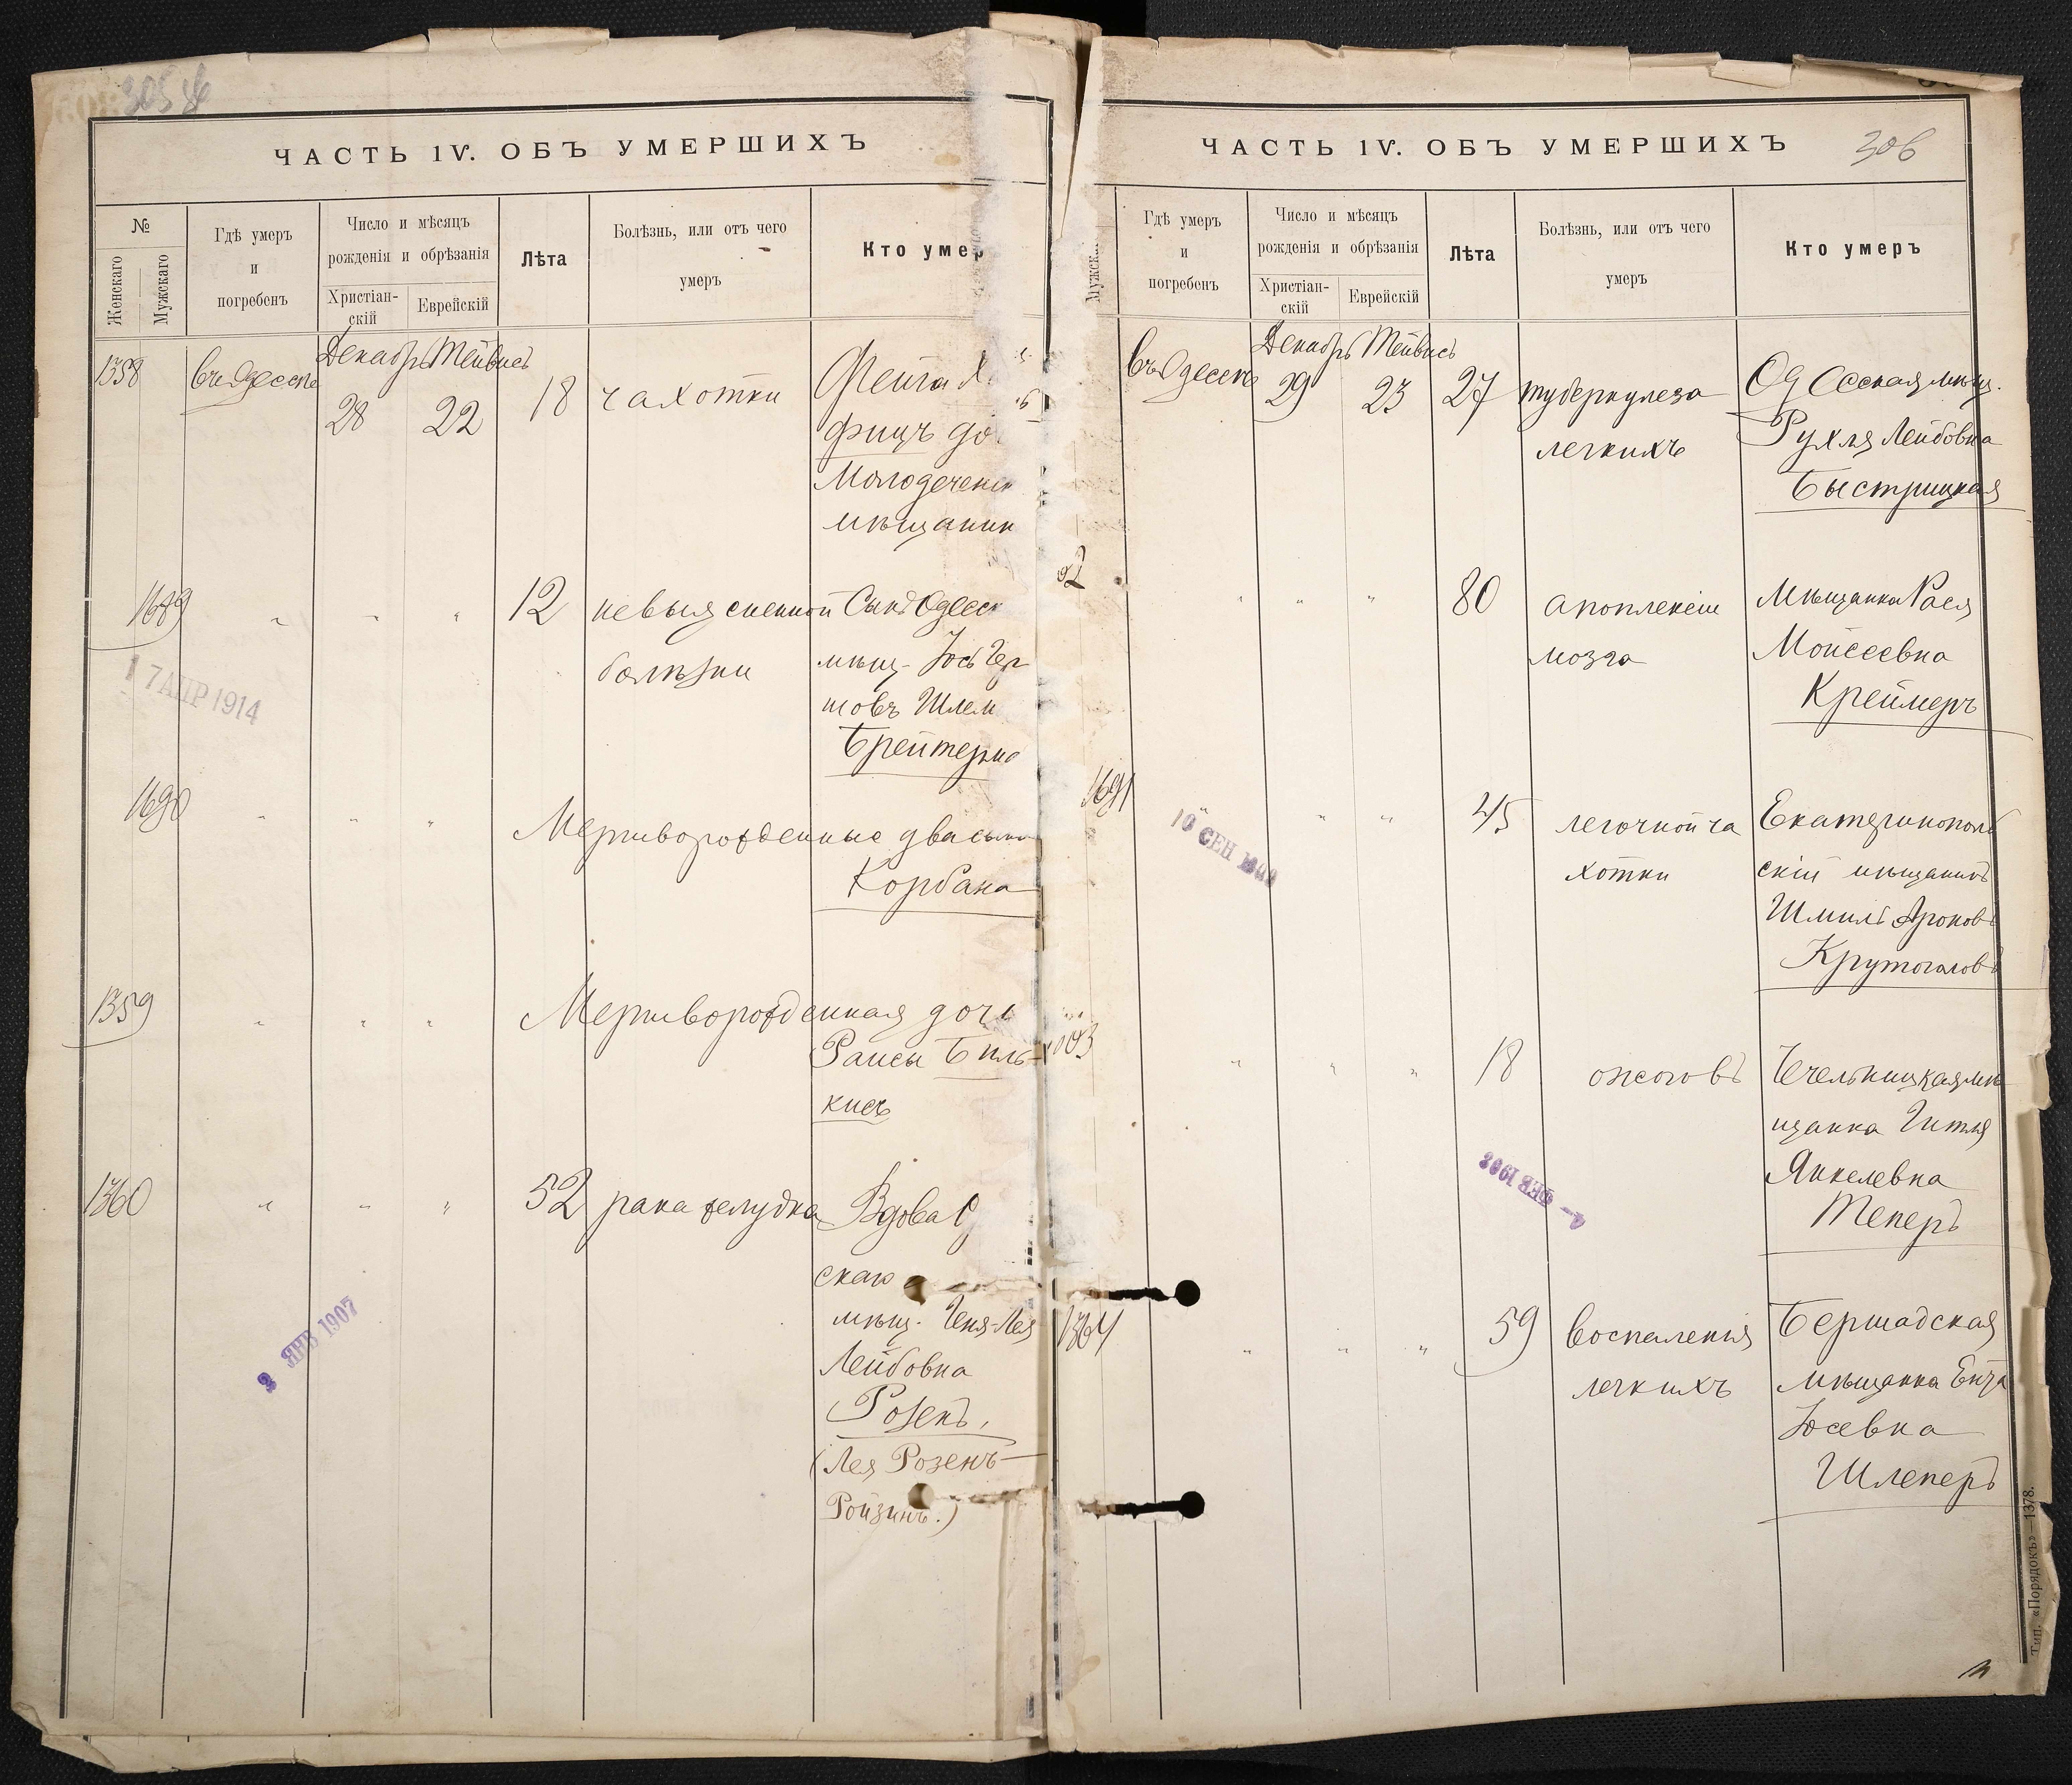 305
ЧАСТЬ IV. ОБЪ УМЕРШИХЪ
№
Женскаго
Мужскаго
Гдѣ умеръ
и
погребенъ
Число и мѣсяцъ
рожденія и обрѣзанія
Христіан-
скій
Еврейскій
Лѣта
Болѣзнь, или отъ чего
умеръ
Кто умер
1358
въ Одессѣ
Декабрь Тейвисъ
28 22
18
чахотки
Фейга Х
фицъ до
Молодеченск
мѣщанин
1689
" " "
12
невыясненной
болѣзни
Сынъ Одесс
мѣщ. Іось Гер
шовъ Шлем
Брейтерма
17 АПР 1914
1690
" " "
Мертворожденные два сына
Корбана
1359
" " "
Мертворожденная дочь
Раисы Биль-
кисъ
1360
" " "
52
рака желудка
Вдова О
скаго
мѣщ. Геня-Лея
Лейбовна
Розенъ.
(Лея Розенъ-
Ройзинъ.)
2 ЯНВ 1907
ЧАСТЬ IV. ОБЪ УМЕРШИХЪ
306
Мужск
Гдѣ умеръ
и
погребенъ
Число и мѣсяцъ
рожденія и обрѣзанія
Христіан-
скій
Еврейскій
Лѣта
Болѣзнь, или отъ чего
умеръ
Кто умеръ
въ Одессѣ
Декабрь Тейвисъ
29 23
27
туберкулеза
легкихъ
Одесская мѣщ.
Рухля Лейбовна
Быстрицкая
" " "
80
апоплексіи
мозга
Мѣщанка Рася
Мойсеевна
Креймеръ
1691
" " "
45
легочной ча
хотки
Екатеринополь
скій мѣщанинъ
Шмиль Ароновъ
Крутоголовъ
10 СЕН
" " "
18
ожоговъ
Чечельницкая мѣ
щанка Гитля
Янкелевна
Теперъ
4- ФЕВ 1908
1364
" " "
59
воспаленія
легкихъ
Бершадская
мѣщанка Ента
Іосевна
Шлеперъ
Тип. «Порядокъ»—1378.